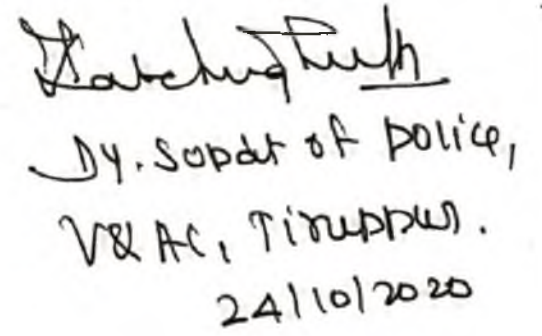 Dy. Supdt of police,
V&AC, Tiruppur.
24/10/2020